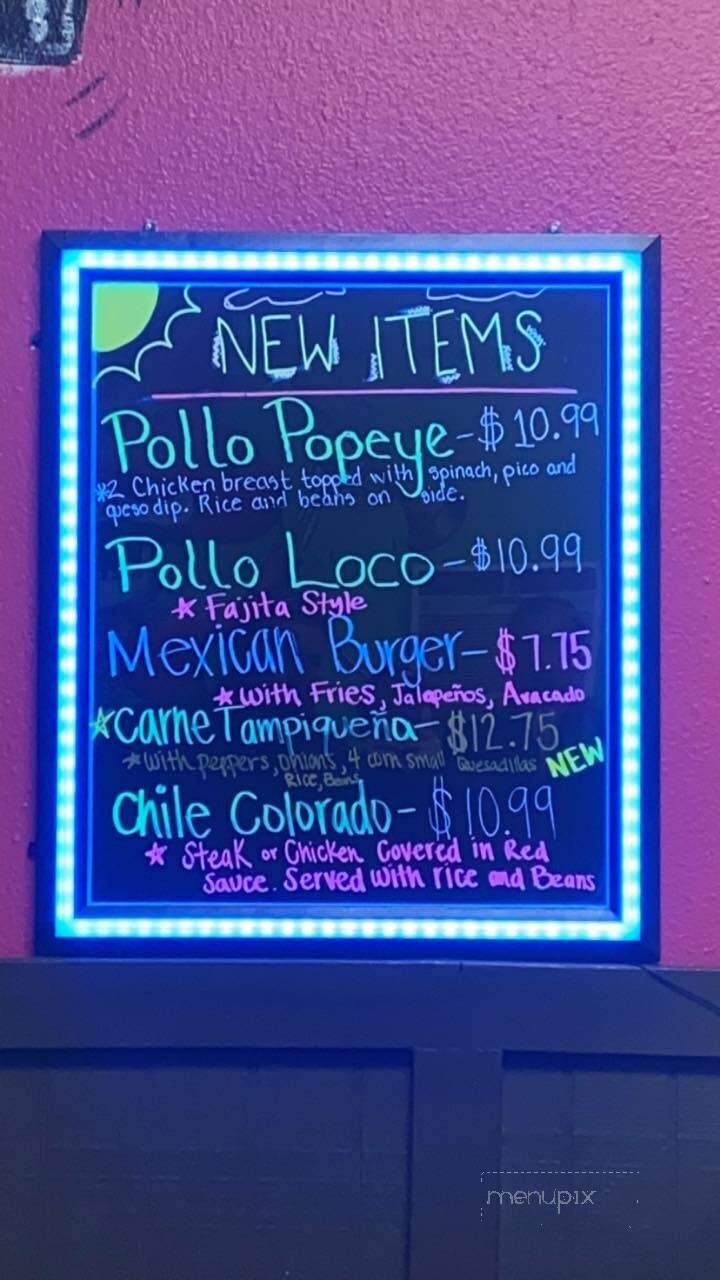 NEW ITEMS
Pollo Popeye-$10.99
*2 Chicken breast topped with spinach, pico and
queso dip. Rice and beans on side.
Pollo Loco-$10.99
* Fajita Style
Mexican Burger-$7.75
* with Fries, Jalapeños, Avacado
*Carne Tampiqueña-$12.75
*with peppers, onions, 4 corn small Quesadillas NEW
Rice, Beans
Chile Colorado-$10.99
* Steak or Chicken Covered in Red
Sauce. Served with rice and Beans
menupix